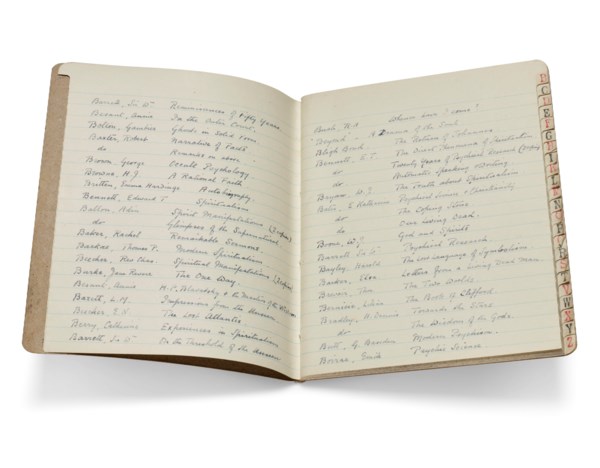 Barrett, Sir Wm Reminiscences of Fifty Years
Besant, Annie In the Outer Court.
Bolton, Gambier Ghosts in Solid Form.
Baxter, Robert Narrative of Facts
do
Brown, George Occult Psychology.
Browne, H.J. A Rational Faith
Britten, Emma Hardinge Autobiography.
Bennett, Edward T. Spiritualism
Ballou, Adin Spirit Manifestations
do Glimpses of the Supernatural
Baker, Rachel Remarkable Sermons.
Barkas, Thomas P. Modern Spiritualism
Beecher, Rev Chas. Spiritual Manifestations
Burke, Jane Revere The One Way.
Besant, Annie H.P. Blavatsky & the Masters of the Wisdom
Barrett, L.M. Impressions from the Unseen
Becker, The Lost Atlantis
Berry, Catherine Experiences in Spiritualism
Barrett, Sir Wm On the Threshold of the Unseen
Bush, "
"Beyond" - A of the Soul.
Bligh Bond The Nature of
Bennett, E.T. The Direct Phenomena of Spiritualism
do Twenty Years of Psychical Research
do Automatic Speaking & Writing
Bryan, W.J. The Truth about Spiritualism
Bates, E. Katherine Psychical Science & Christianity
do The Coping Stone
do Our Living Dead.
Brown, God and Spirits
Barrett, Sir Wm Psychical Research.
Bayley, Harold The lost language of symbolism
Barker, Elsa Letters from a Living Dead Man
The Two Worlds.
The Book of
Bradley, H. Dennis Towards the Stars
do The Wisdom of the Gods.
Modern Psychism.
Psychic Science.
B
C
D
E
T
V
W
X
Y
Z